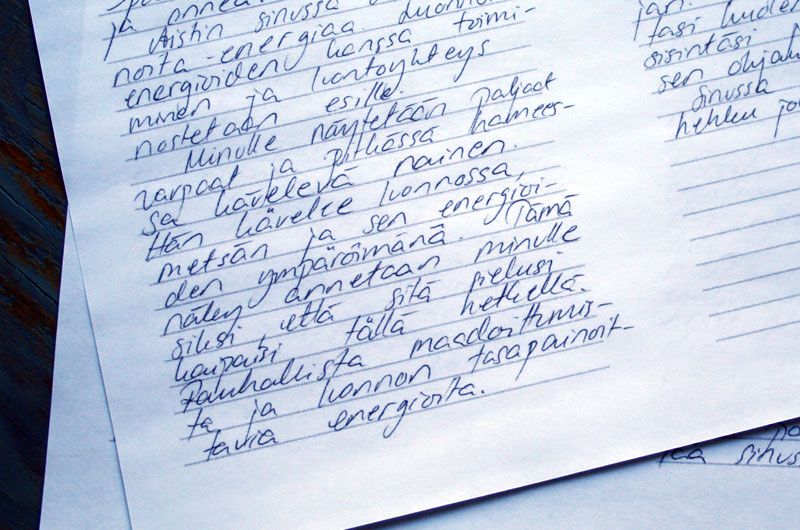 ja onnea
Aistin sinussa
noita-energiaa luonnon
energioiden kanssa toimi-
minen ja luontoyhteys
nostetaan esille.
Minulle näytetään paljaat
varpaat ja pitkässä hamees-
sa kävelevä nainen.
Hän kävelee luonnossa,
metsän ja sen energioi-
den ympäröimänä. Tämä
näky annetaan minulle
siksi, että sitä sielusi
kaipaisi tällä hetkellä.
Rauhallista maadoittumis-
ta ja luonnon tasapainoit-
tavia energioita.
tasi
sisintäsi
sen
sinussa
hehku
sinus